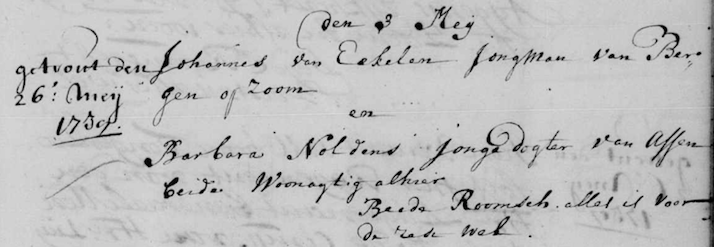 den 3 Meij
getrout den
26: meij
1739.
Johannes van Eekelen Jongman van Ber-
gen op zoom
en
Barbara Noldens Jonge dogter van Assen
beide Woonagtig alhier
Beede Roomsch. alles is voor
de wel.